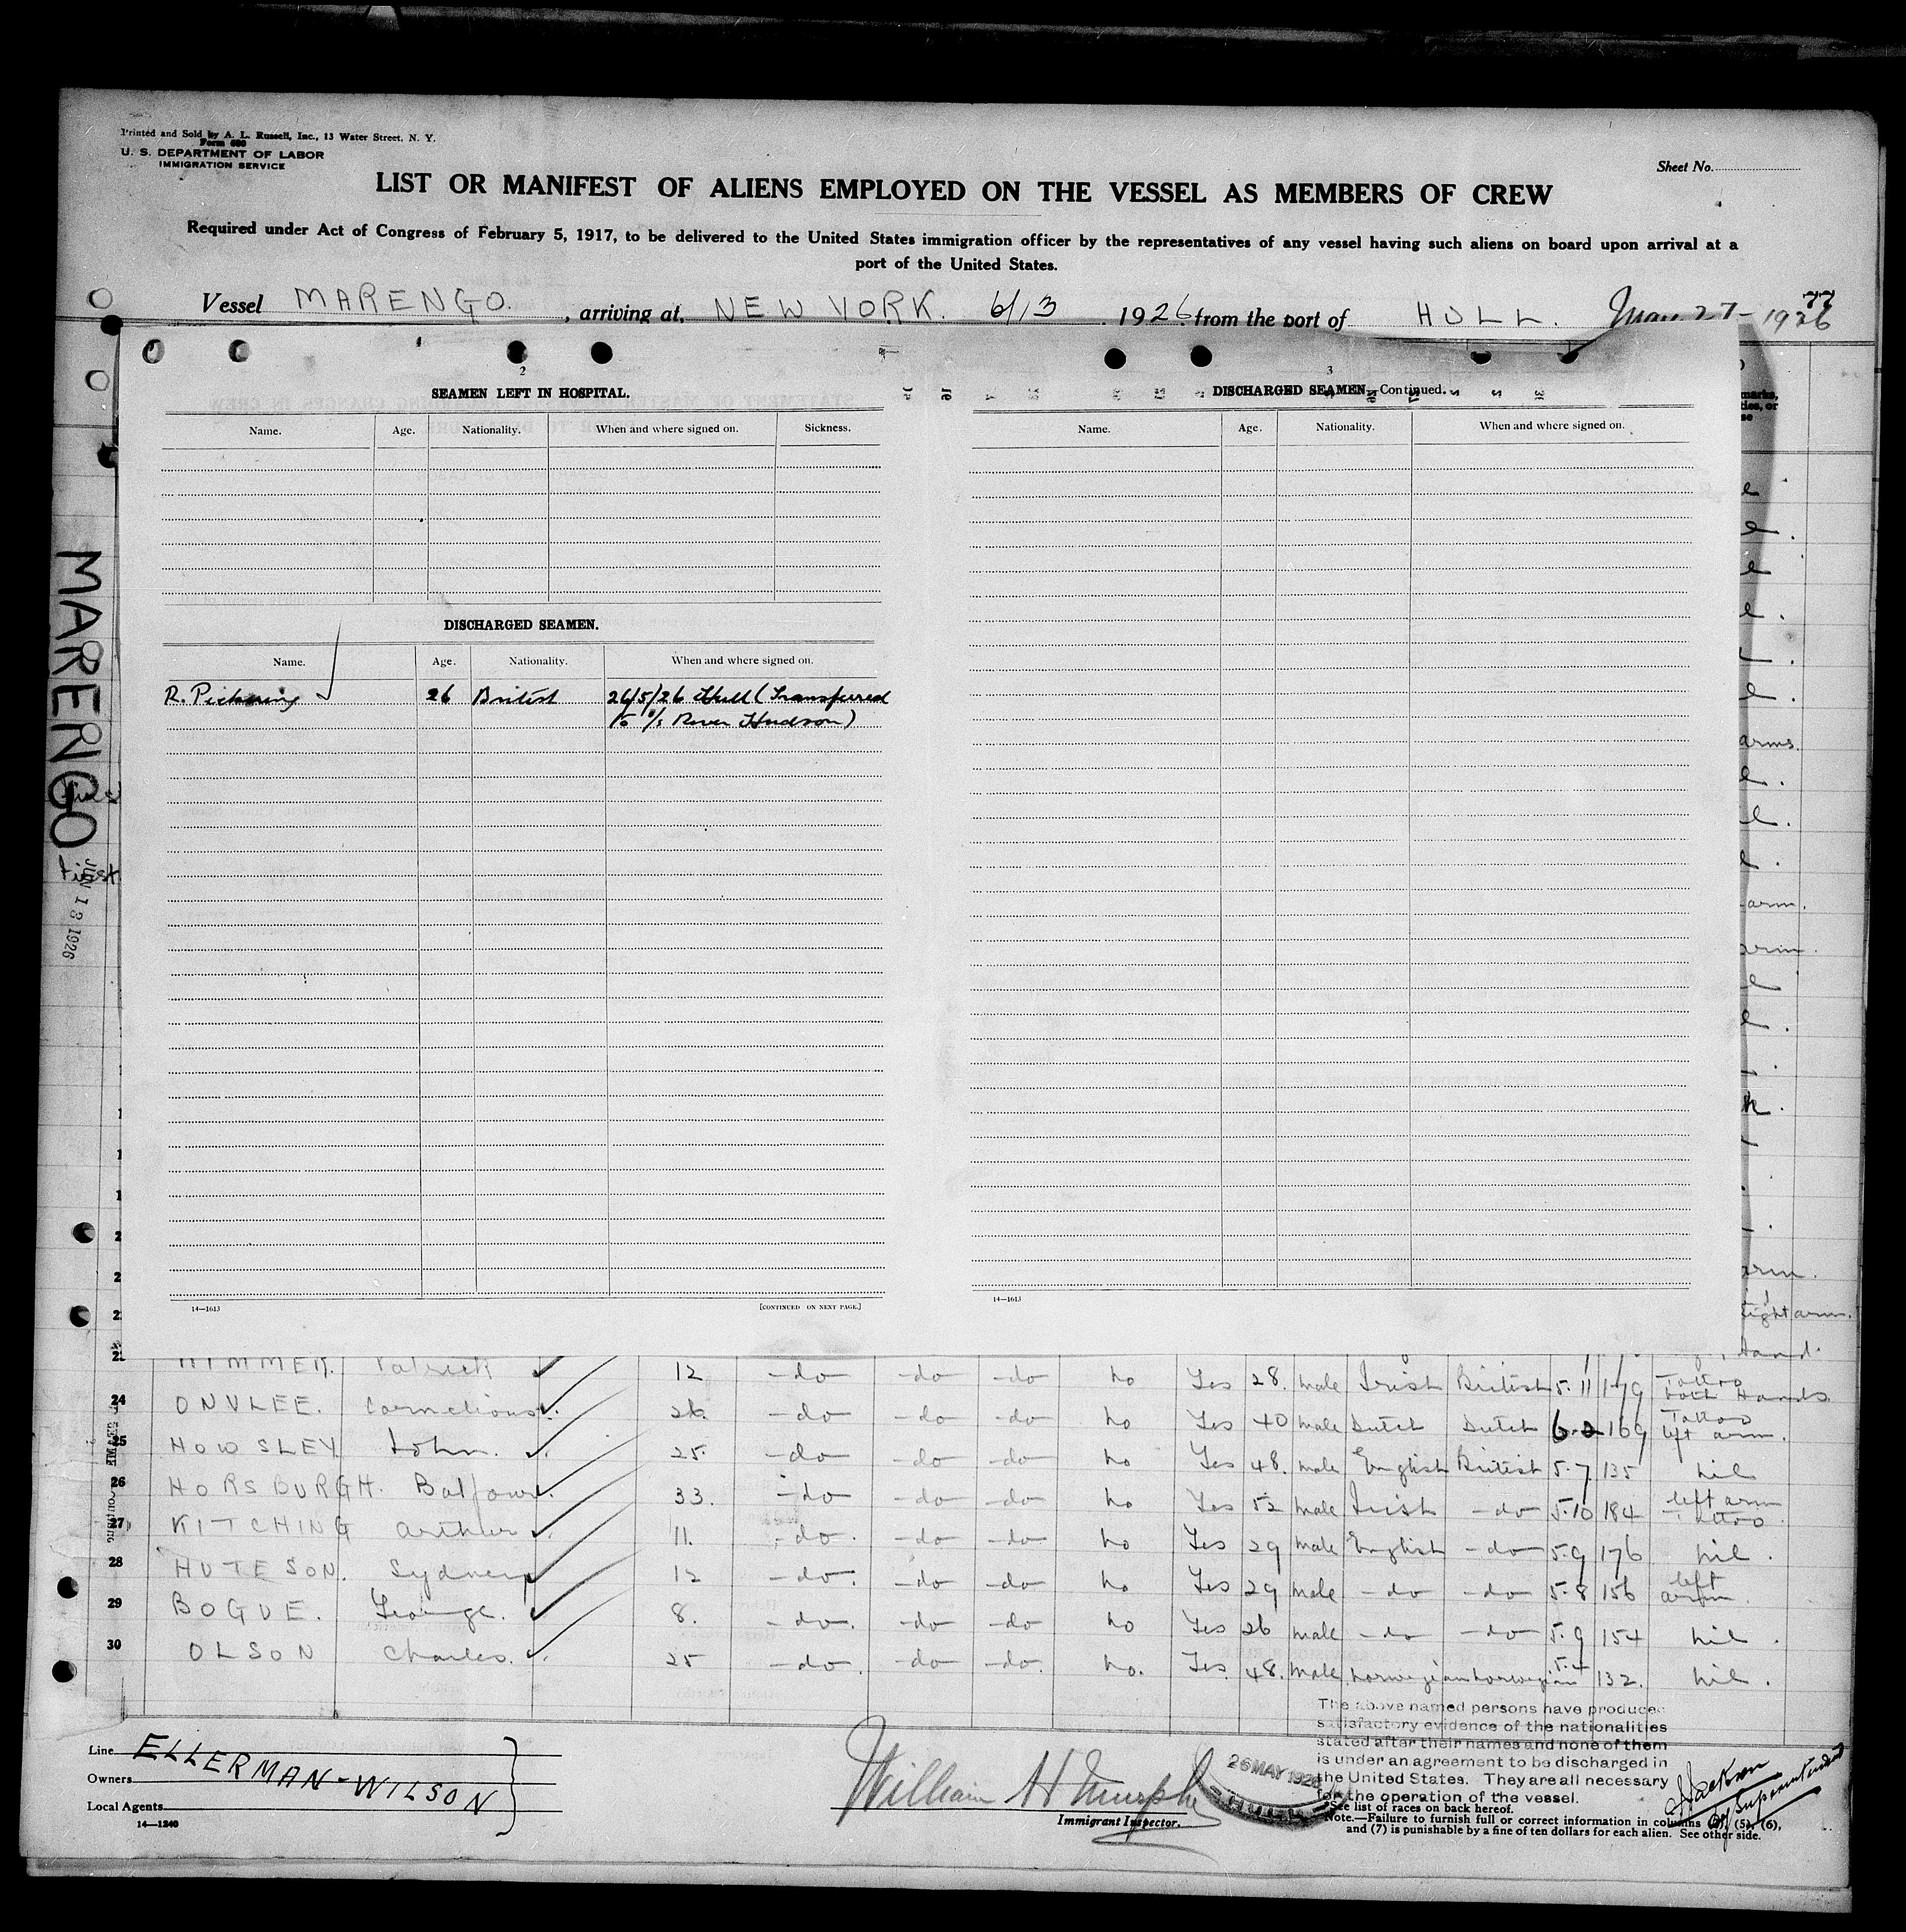 Printed and Sold by A. L. Russell, Inc., 13 Water Street, N. Y.
Form 680
U. S. DEPARTMENT OF LABOR
IMMIGRATION SERVICE
Sheet No.
LIST OR MANIFEST OF ALIENS EMPLOYED ON THE VESSEL AS MEMBERS OF CREW
Required under Act of Congress of February 5, 1917, to be delivered to the United States immigration officer by the representatives of any vessel having such aliens on board upon arrival at a
port of the United States.
77
Vessel MARENGO. , arriving at, NEW YORK. 6/13 1926 from the port of HULL. May 27- 1926
2
SEAMEN LEFT IN HOSPITAL.
Name. Age. Nationality. When and where signed on. Sickness.
DISCHARGED SEAMEN.
Name. Age. Nationality. When and where signed on.
R. Pickering 26 British 26/5/26 Hull (Transferred
to s/s River Hudson)
14—1613 [CONTINUED ON NEXT PAGE.]
3
DISCHARGED SEAMEN—Continued.
Name. Age. Nationality. When and where signed on.
14—1613
MARENGO
JUN 13 1926
marks,
arms.
arm.
arm.
arm.
right arm.
hand.
HIMMER. Patrick 12 -do -do -do no Yes 28. male Irish British 5.11 179 Tattoo both Hands
24 ONVLEE. Cornelious. 26. -do -do -do no Yes 40 male Dutch Dutch 6.2 169 Tattoo left arm.
25 HOWSLEY John. 25. -do -do -do no Yes 48. male English British 5.7 135 nil
26 HORSBURGH. Balfour. 33. -do -do -do no Yes 52 male Irish -do 5.10 184 left arm Tattoo
27 KITCHING Arthur 11. -do. -do -do no Yes 29 male English -do 5.9 176 nil.
28 HUTESON. Sydney 12 -do. -do -do no Yes 29 male -do -do 5.8 156 left arm.
29 BOGUE. George. 8. -do. -do -do no Yes 26 male -do -do 5.9 154 nil.
30 OLSON Charles. 25 -do. -do -do. no. Yes. 48. male. norwegian norwegian 5.4 132. nil.
Line
Owners
Local Agents
ELLERMAN-WILSON
14—1240
William H Murphy
Immigrant Inspector.
26 MAY 1926
HULL
The above named persons have produced
satisfactory evidence of the nationalities
stated after their names and none of them
is under an agreement to be discharged in
the United States. They are all necessary
for the operation of the vessel.
J Jackson
Dy Superintendent
*See list of races on back hereof.
Note.—Failure to furnish full or correct information in columns (5), (6),
and (7) is punishable by a fine of ten dollars for each alien. See other side.